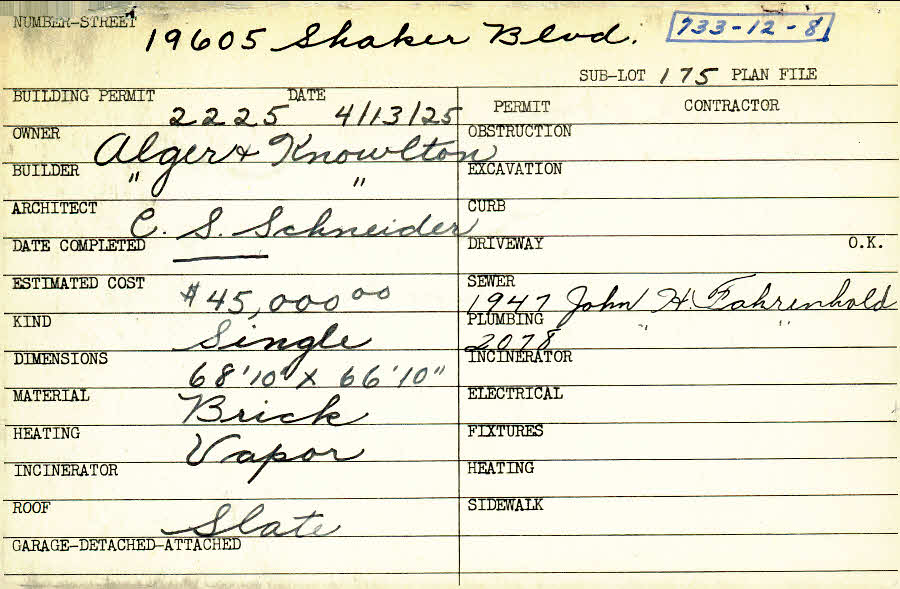 NUMBER-STREET 19605 Shaker Blvd. 733-12-8
SUB-LOT 175 PLAN FILE
BUILDING PERMIT 2225 DATE 4/13/25
OWNER Alger & Knowlton
BUILDER " "
ARCHITECT C. S. Schneider
DATE COMPLETED ——
ESTIMATED COST $45,000 00
KIND Single
DIMENSIONS 68'10" x 66'10"
MATERIAL Brick
HEATING Vapor
INCINERATOR
ROOF Slate
GARAGE-DETACHED-ATTACHED
PERMIT CONTRACTOR
OBSTRUCTION
EXCAVATION
CURB
DRIVEWAY O.K.
SEWER 1947 John H. Fahrenhold
PLUMBING 2078 " "
INCINERATOR
ELECTRICAL
FIXTURES
HEATING
SIDEWALK